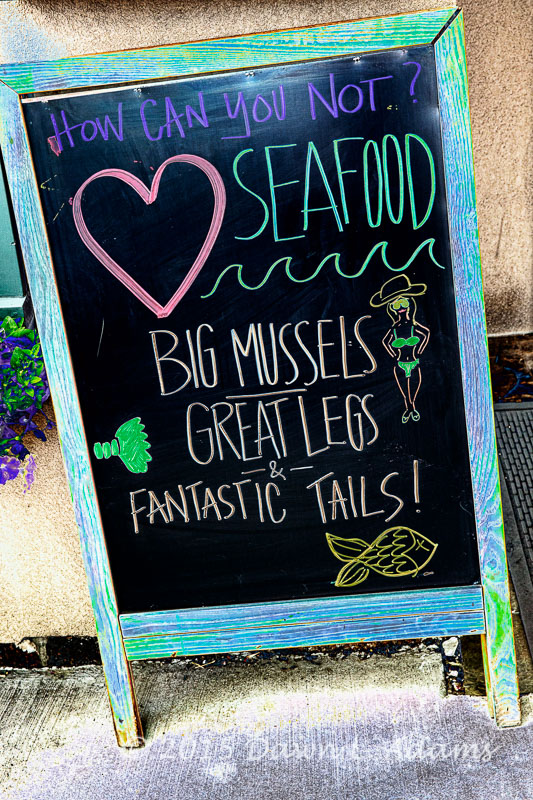 HOW CAN YOU NOT?
SEAFOOD
BIG MUSSELS
GREAT LEGS
&
FANTASTIC TAILS!
© 2015 Dawn L. Adams